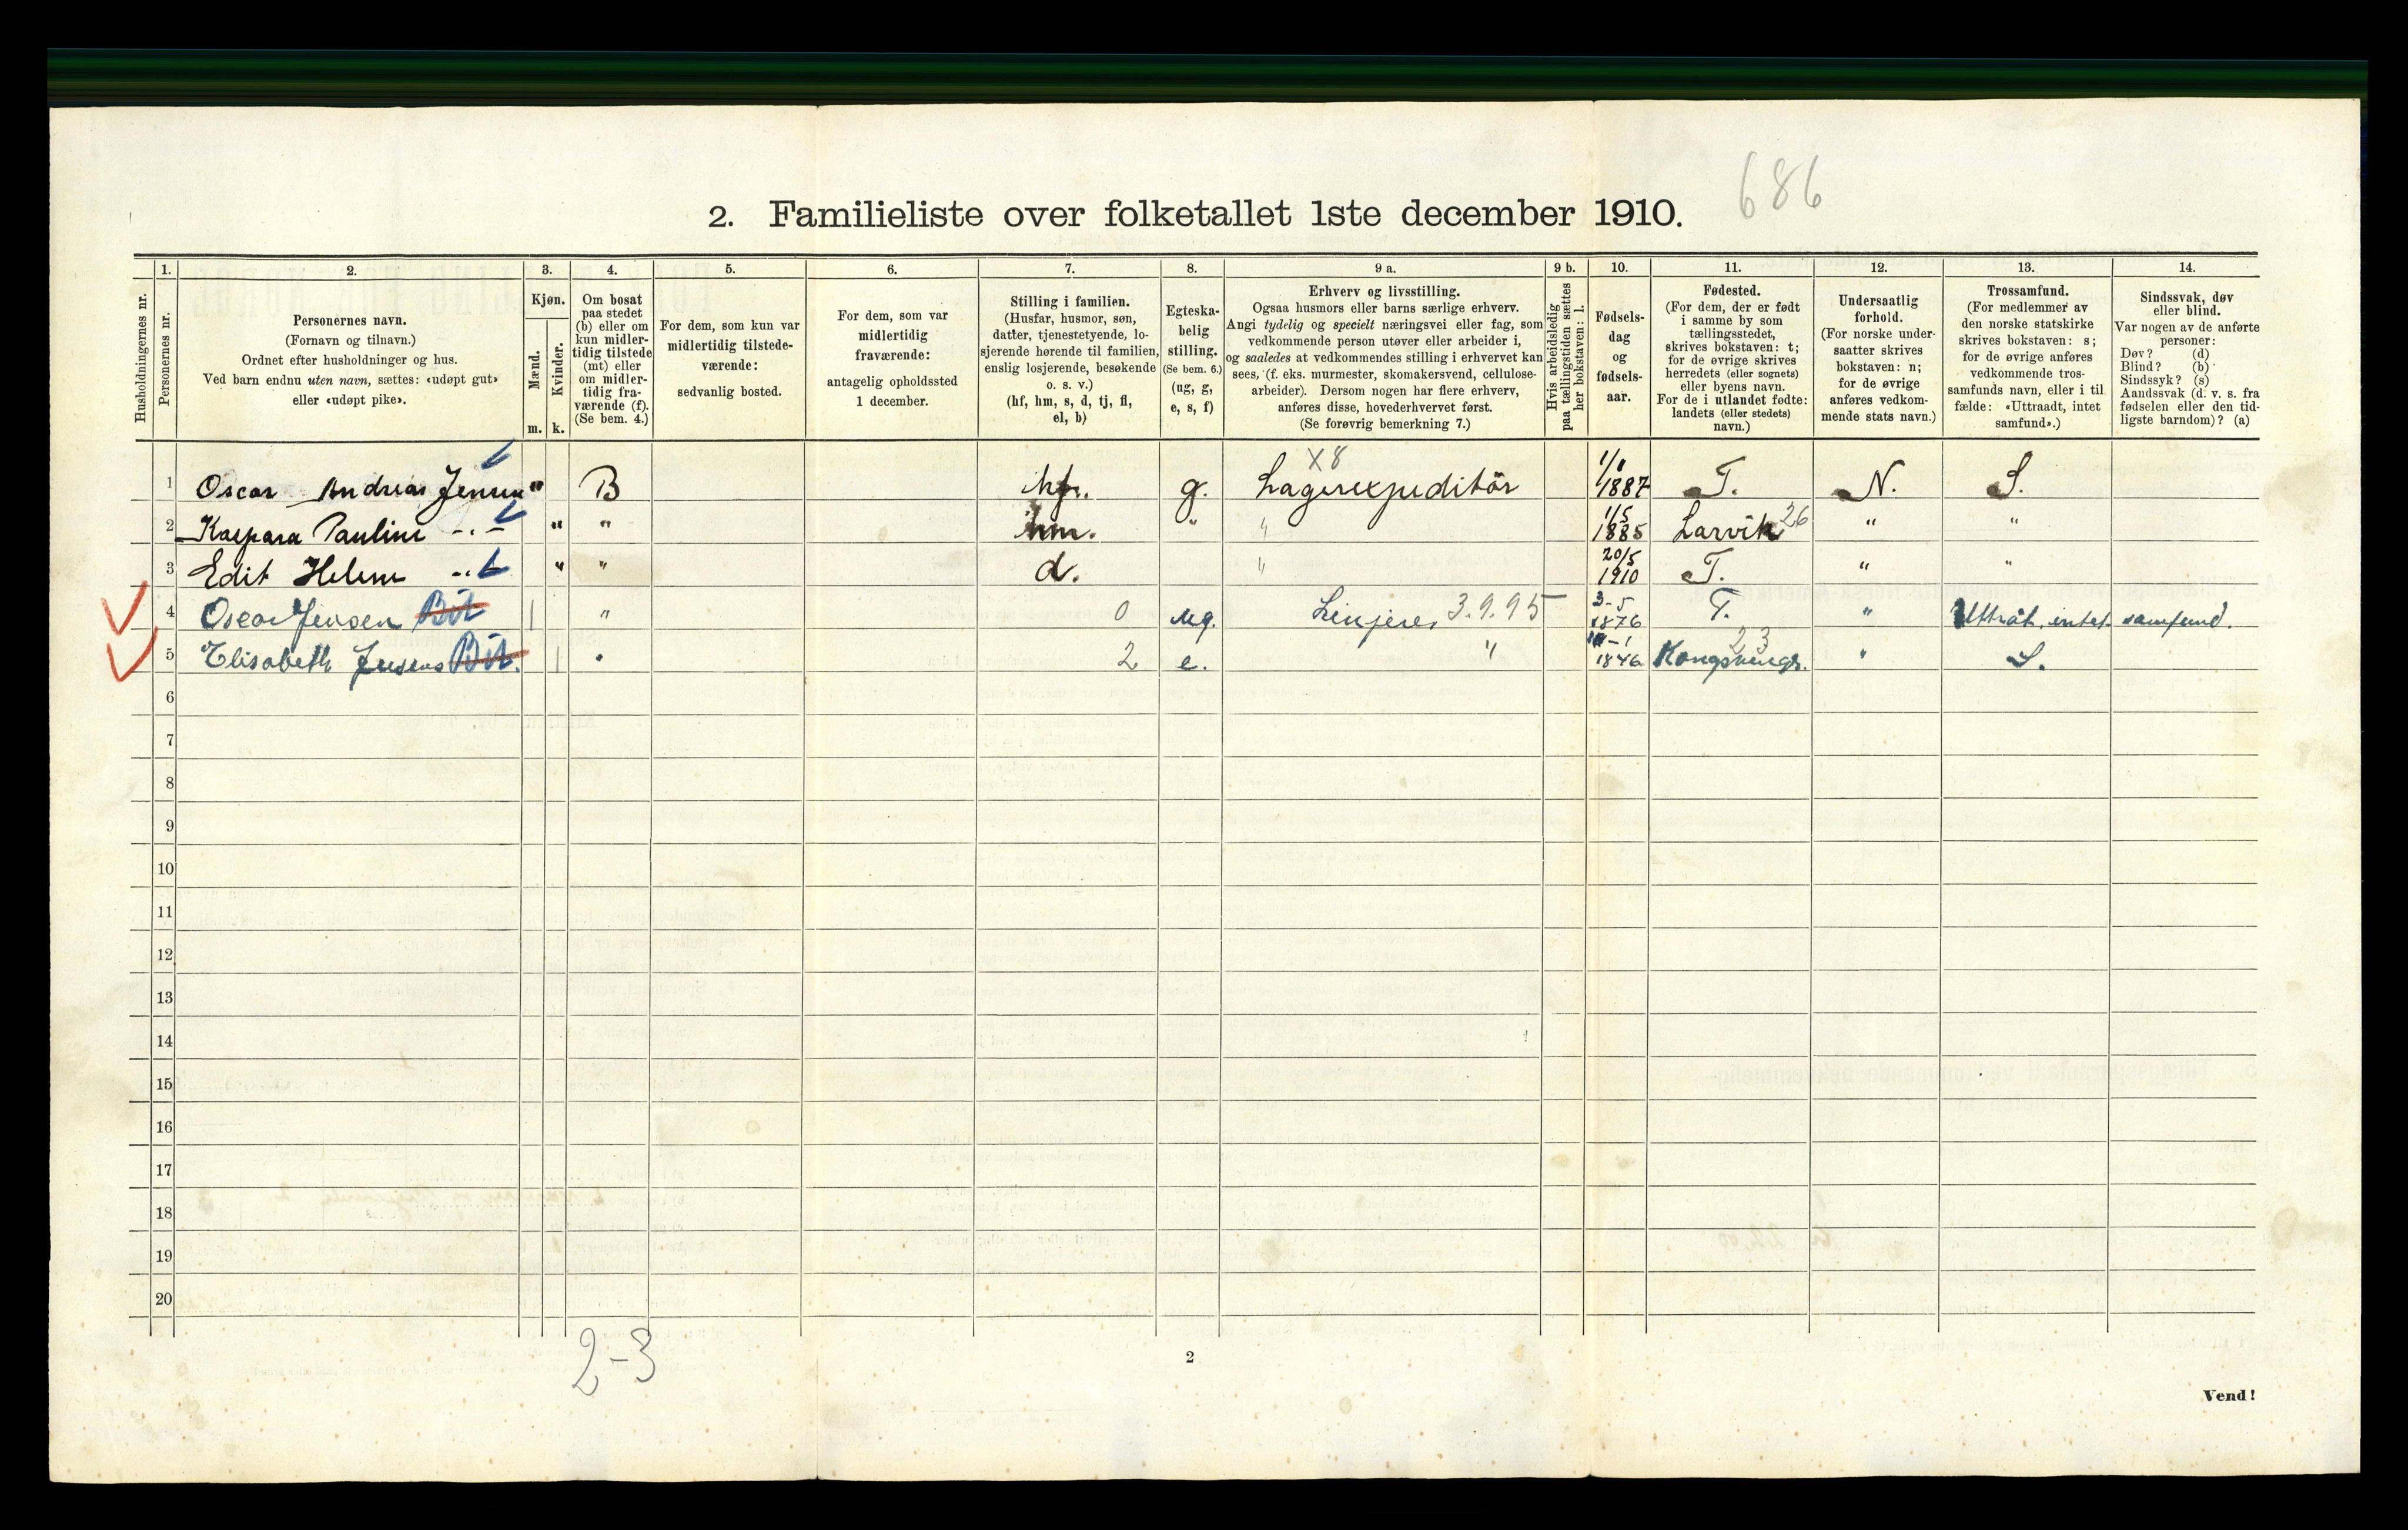 686
2. Familieliste over folketallet 1ste december 1910.
Husholdningernes nr.
1. Personernes nr.
2. Personernes navn.
(Fornavn og tilnavn.)
Ordnet efter husholdninger og hus.
Ved barn endnu uten navn, sættes: «udøpt gut»
eller «udøpt pike».
3. Kjøn.
Mænd. m.
Kvinder. k.
4. Om bosat
paa stedet
(b) eller om
kun midler-
tidig tilstede
(mt) eller
om midler-
tidig fra-
værende (f).
(Se bem. 4.)
5. For dem, som kun var
midlertidig tilstede-
værende:
sedvanlig bosted.
6. For dem, som var
midlertidig
fraværende:
antagelig opholdssted
1 december.
7. Stilling i familien.
(Husfar, husmor, søn,
datter, tjenestetyende, lo-
sjerende hørende til familien,
enslig losjerende, besøkende
o. s. v.)
(hf, hm, s, d, tj, fl,
el, b)
8. Egteska-
belig
stilling.
(Se bem. 6.)
(ug, g,
e, s, f)
9 a. Erhverv og livsstilling.
Ogsaa husmors eller barns særlige erhverv.
Angi tydelig og specielt næringsvei eller fag, som
vedkommende person utøver eller arbeider i,
og saaledes at vedkommendes stilling i erhvervet kan
sees, (f. eks. murmester, skomakersvend, cellulose-
arbeider). Dersom nogen har flere erhverv,
anføres disse, hovederhvervet først.
(Se forøvrig bemerkning 7.)
9 b. Hvis arbeidsledig
paa tællingstiden sættes
her bokstaven: l.
10. Fødsels-
dag
og
fødsels-
aar.
11. Fødested.
(For dem, der er født
i samme by som
tællingsstedet,
skrives bokstaven: t;
for de øvrige skrives
herredets (eller sognets)
eller byens navn.
For de i utlandet fødte:
landets (eller stedets)
navn.)
12. Undersaatlig
forhold.
(For norske under-
saatter skrives
bokstaven: n;
for de øvrige
anføres vedkom-
mende stats navn.)
13. Trossamfund.
(For medlemmer av
den norske statskirke
skrives bokstaven: s;
for de øvrige anføres
vedkommende tros-
samfunds navn, eller i til-
fælde: «Uttraadt, intet
samfund».)
14. Sindssvak, døv
eller blind.
Var nogen av de anførte
personer:
Døv? (d)
Blind? (b)
Sindssyk? (s)
Aandssvak (d. v. s. fra
fødselen eller den tid-
ligste barndom)? (a)
X8
1 Oscar Andreas Jensen " B hf. g. Lagerexpeditör 1/1 1887 T. N. S.
2 Kaspara Pauline -.- " " hm. " " 1/5 1885 Larvik 26 " "
3 Edit Helene -..- " " d. " 20/5 1910 T. " "
4 Oscar Jensen Bit | " 0 ug. 3.9.95 3-5 1876 T. " Uttråt. intet samfund.
5 Elisabeth Jensen Bit. | " 2 e. " 1846 Kongsvinger. 23 " S.
6
7
8
9
10
11
12
13
14
15
16
17
18
19
20
2-3
2
Vend!